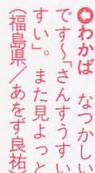 ✪わかば　なつかしい
です〜「さんすうすい
すい」。また見よっと
(福島県／あをず良祐